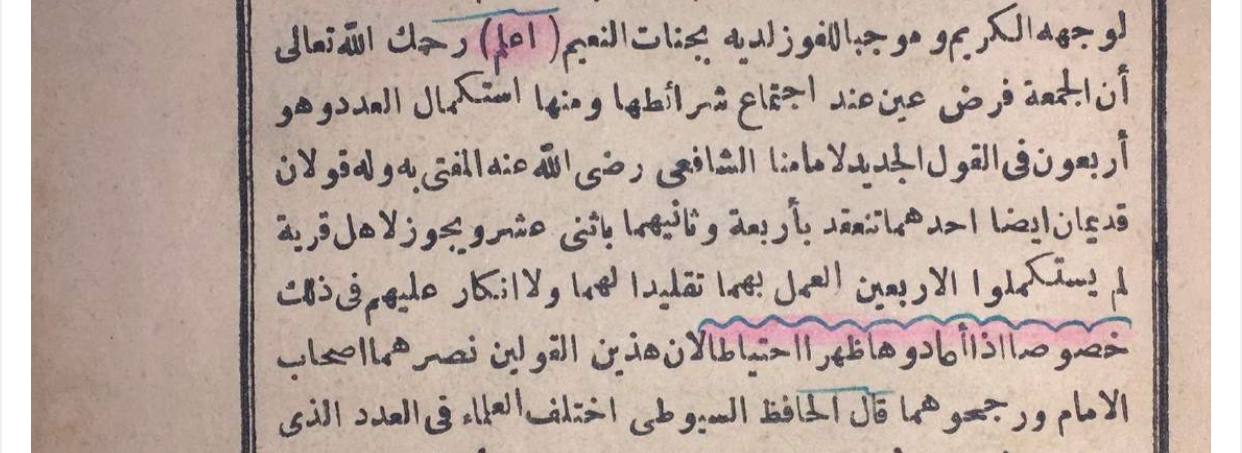 لوجهه الكريم و موجبا للفوز لديه بجنات النعيم (اعلم) رحمك الله تعالى
أن الجمعة فرض عين عند اجتماع شرائطها ومنها استكمال العدد وهو
أربعون فى القول الجديد لامامنا الشافعى رضى الله عنه المفتى به وله قولان
قديمان ايضا احدهما تنعقد بأربعة وثانيهما باثنى عشر ويجوز لاهل قرية
لم يستكملوا الاربعين العمل بهما تقليدا لهما ولا انكار عليهم فى ذلك
خصوصا اذا أعادوها ظهرا احتياطا لان هذين القولين نصرهما اصحاب
الامام ورجحوهما قال الحافظ السيوطى اختلف العلماء فى العدد الذى